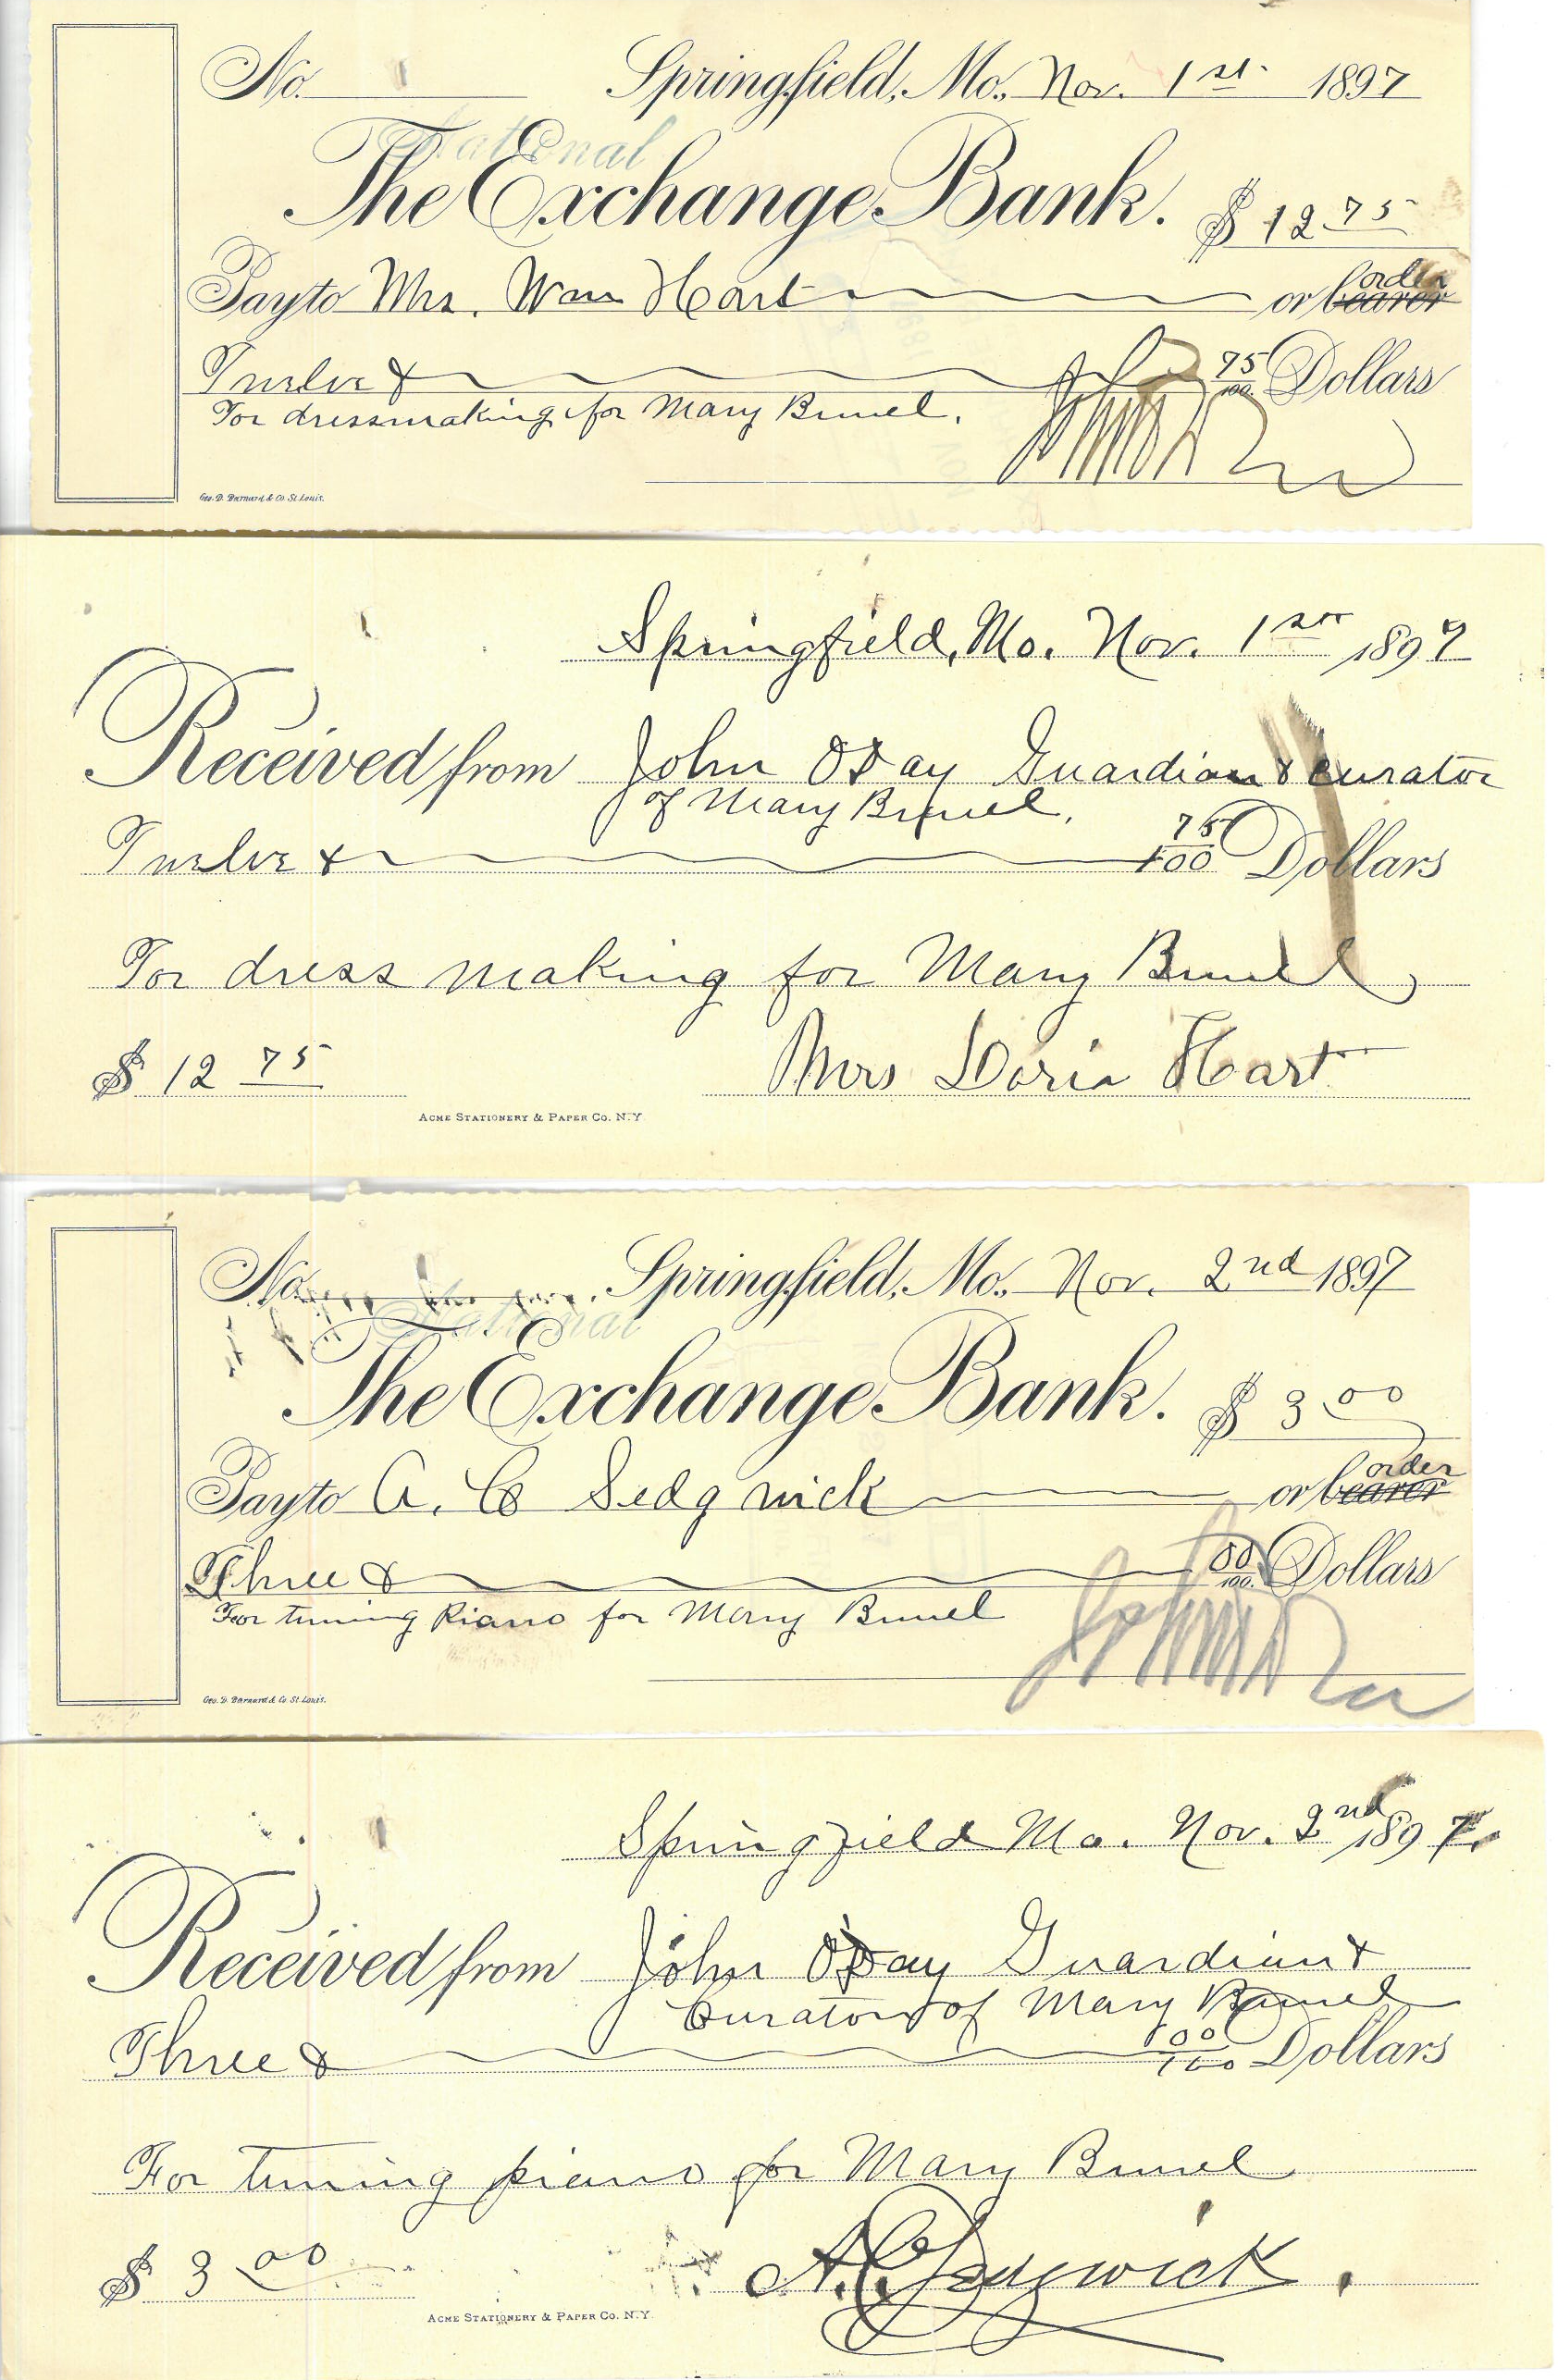 No. Springfield, Mo. Nov. 1st. 1897
National
The Exchange Bank. $ 12 75
order
Pay to Mrs. Wm Hart or bearer
Twelve & 75/100 Dollars
For dressmaking for Mary Bunel.
Geo. D. Barnard & Co. St. Louis.
Springfield, Mo. Nov. 1st 1897
Received from John O'Day Guardian & curator
of Mary Bunel.
Twelve & 75/100 Dollars
For dress making for Mary Bunel
$ 12 75 Mrs Doria Hart
ACME STATIONERY & PAPER CO. N.Y.
No. Springfield, Mo. Nov. 2nd 1897
National
The Exchange Bank. $ 3 00
order
Pay to A. C Sedgwick or bearer
Three & 00/100 Dollars
For tuning Piano for Mary Bunel
Geo. D. Barnard & Co. St. Louis.
Springfield Mo. Nov. 2nd 1897.
Received from John O'Day Guardian &
Curator of Mary Bunel
Three & 00/100 Dollars
For tuning piano for Mary Bunel
$ 3 00 A. C. Sedgwick.
ACME STATIONERY & PAPER CO. N.Y.